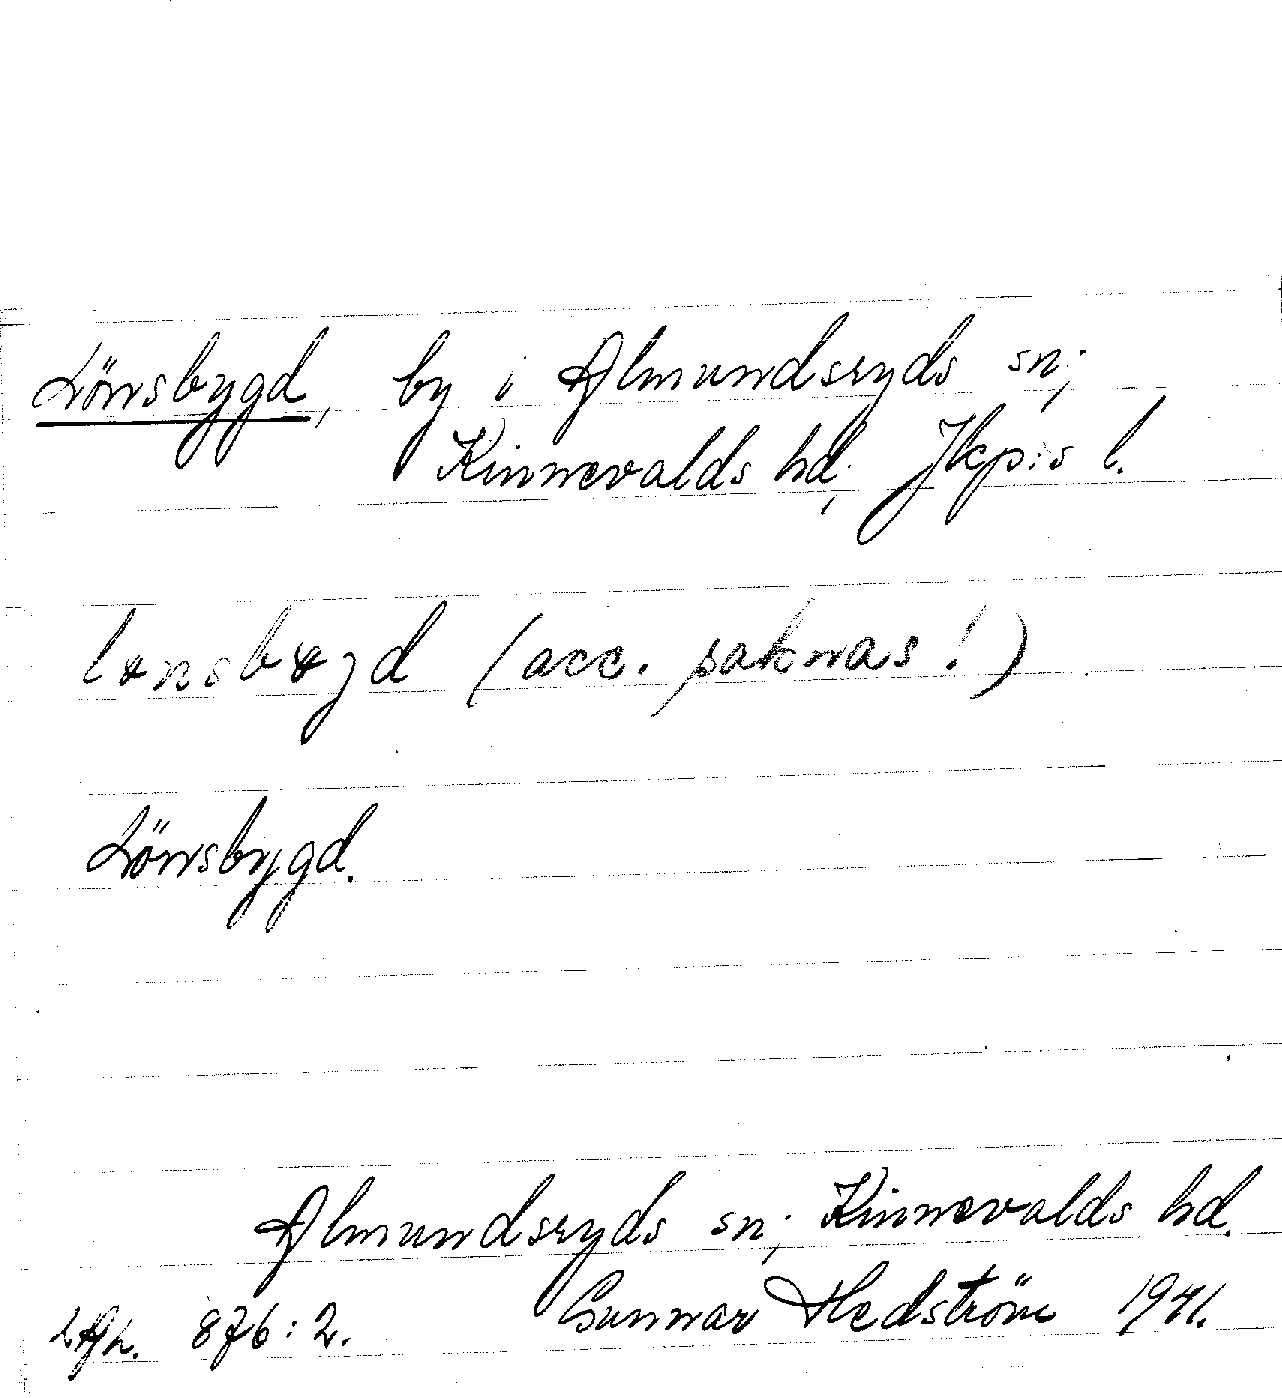 Lönsbygd, by i Almundsryds sn;
Kinnevalds hd; Jkp:s l.
lønsbøgd (acc. saknas!)
Lönsbygd.
Almundsryds sn; Kinnevalds hd.
876:2. Gunnar Hedström 1941.